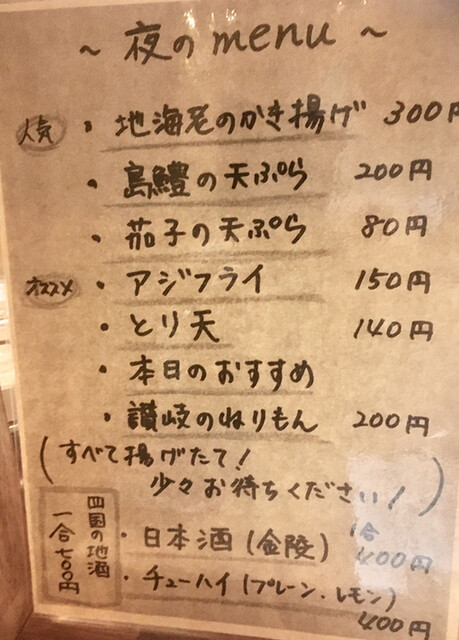 ～ 夜のmenu ～
人気 ・地海老のかき揚げ 300円
・島鱧の天ぷら 200円
・茄子の天ぷら 80円
オススメ ・アジフライ 150円
・とり天 140円
・本日のおすすめ
・讃岐のねりもん 200円
(すべて揚げたて!
少々お待ちください!)
四国の地酒
一合七〇〇円
・日本酒(金陵) 1合 400円
・チューハイ(プレーン・レモン)
400円